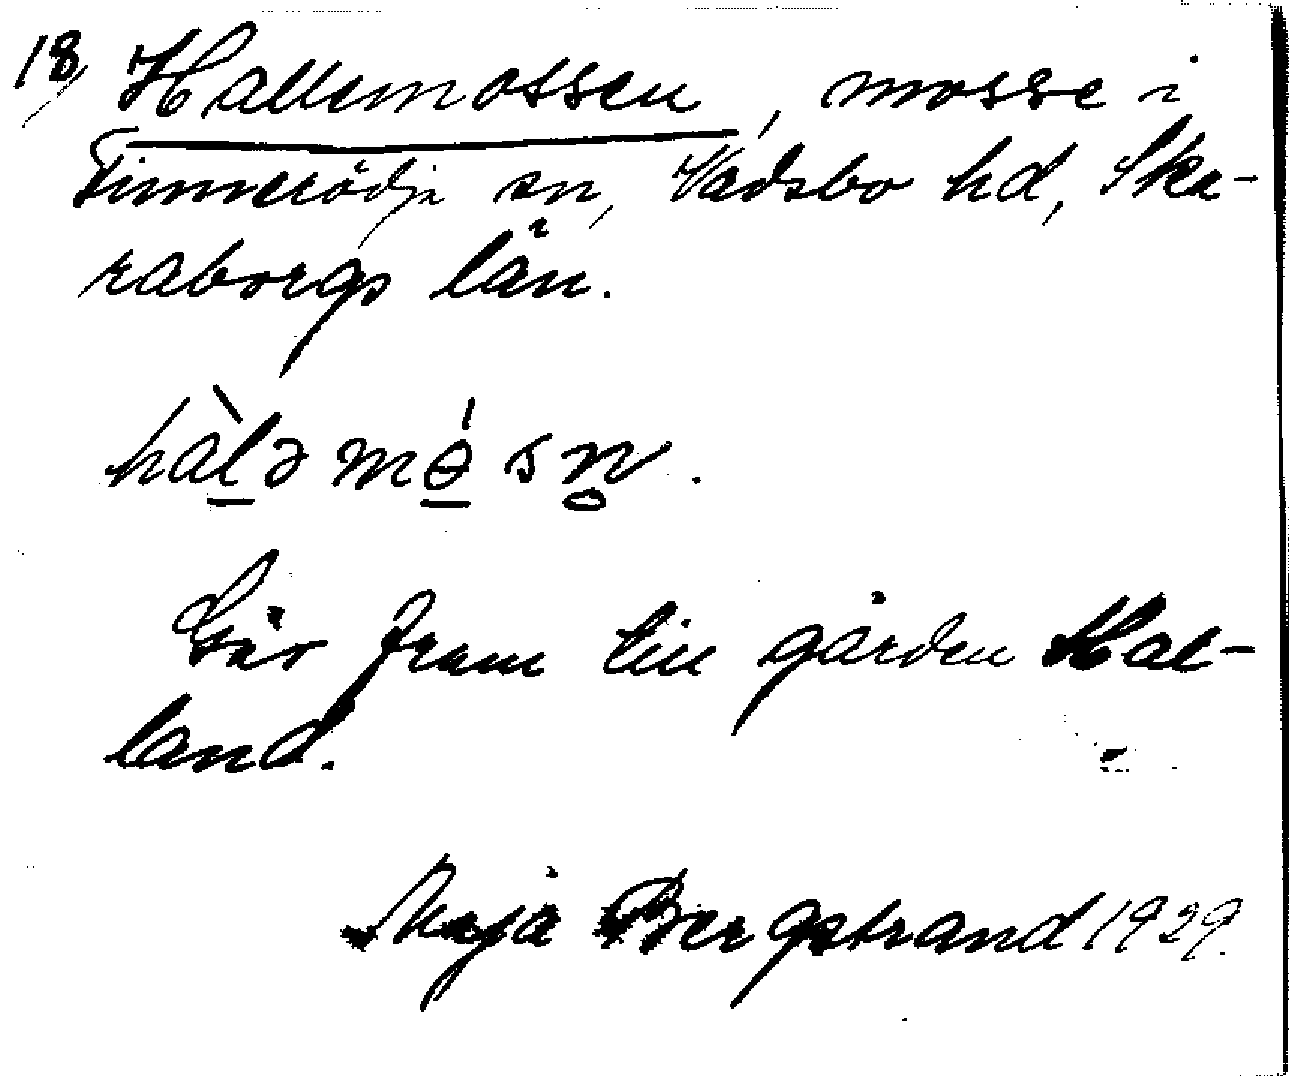 18) Hallemossen, mosse i
Tinnerödja sn, Vadsbo hd, Ska-
raborgs län.
hàl̲ə mɵ̲́ sn̥.
Går fram till gården Hal-
land.
Maja Bergstrand 1929.